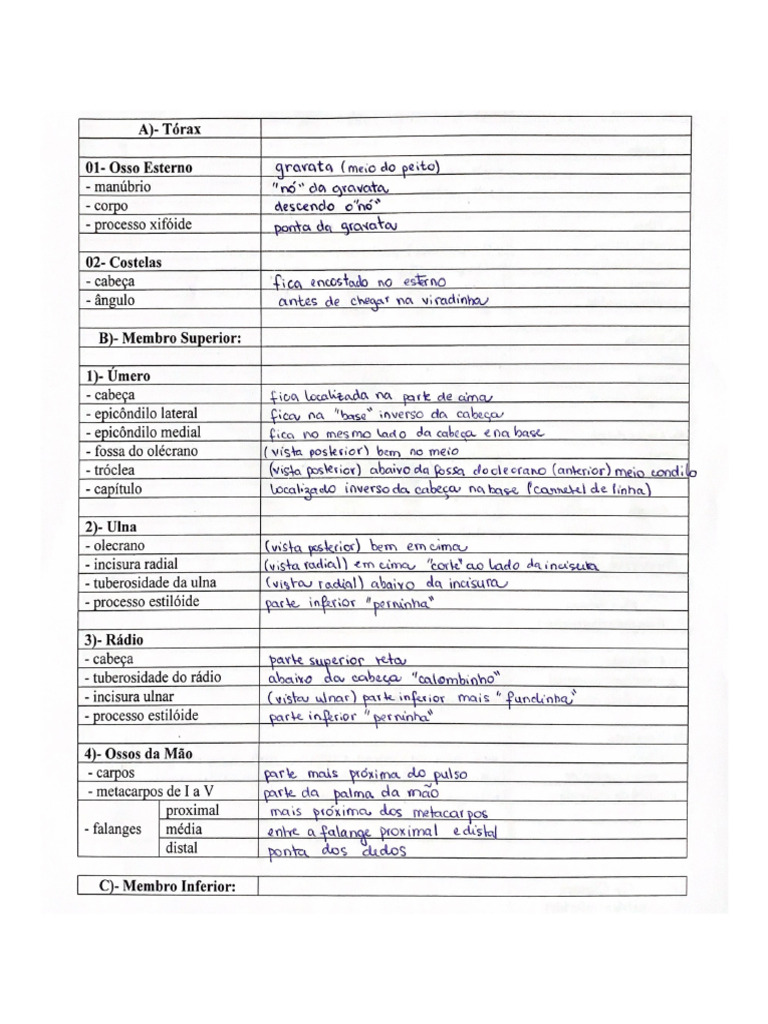 A)- Tórax
01- Osso Esterno gravata (meio do peito)
- manúbrio "nó" da gravata
- corpo descendo o "nó"
- processo xifóide ponta da gravata
02- Costelas
- cabeça fica encostado no esterno
- ângulo antes de chegar na viradinha
B)- Membro Superior:
1)- Úmero
- cabeça fica localizada na parte de cima
- epicôndilo lateral fica na "base" inverso da cabeça
- epicôndilo medial fica no mesmo lado da cabeça e na base
- fossa do olécrano (vista posterior) bem no meio
- tróclea (vista posterior) abaixo da fossa do olecrano (anterior) meio condilo
- capítulo localizado inverso da cabeça na base (carretel de linha)
2)- Ulna
- olecrano (vista posterior) bem em cima
- incisura radial (vista radial) em cima "corte" ao lado da incisura
- tuberosidade da ulna (vista radial) abaixo da incisura
- processo estilóide parte inferior "perninha"
3)- Rádio
- cabeça parte superior reta
- tuberosidade do rádio abaixo da cabeça "calombinho"
- incisura ulnar (vista ulnar) parte inferior mais "fundinha"
- processo estilóide parte inferior "perninha"
4)- Ossos da Mão
- carpos parte mais próxima do pulso
- metacarpos de I a V parte da palma da mão
proximal mais próxima dos metacarpos
- falanges média entre a falange proximal e distal
distal ponta dos dedos
C)- Membro Inferior: